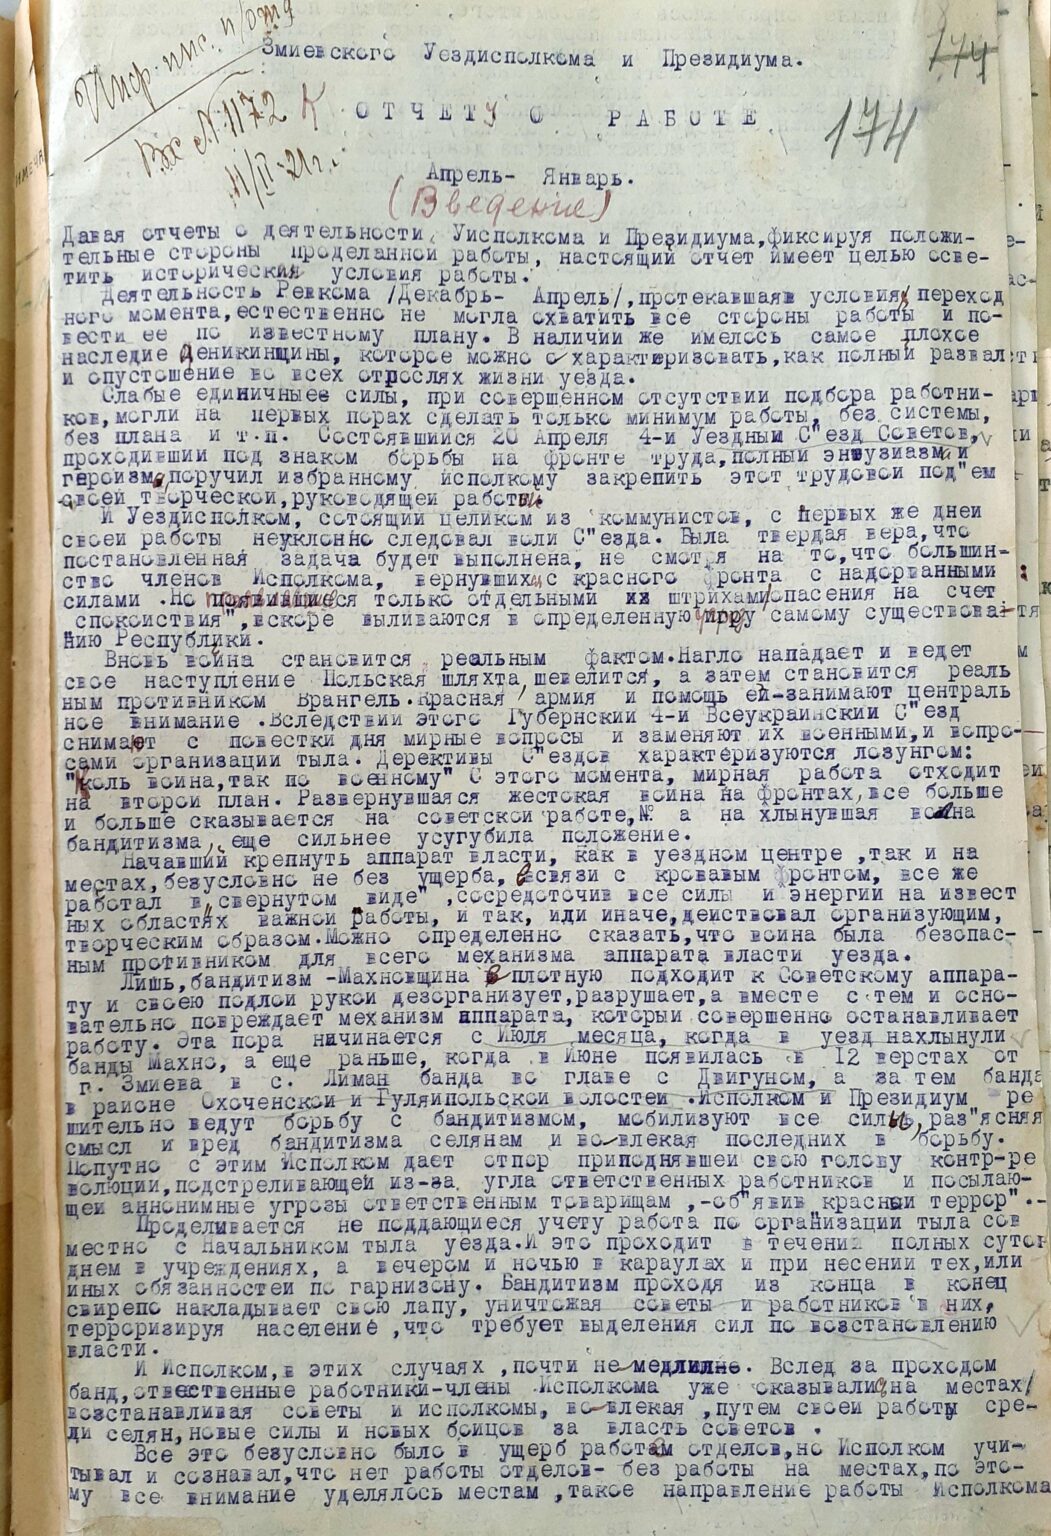 Инф. пис. и/отд
Вх № 1172
11/II-21г.
174
174
Змиевского Уездисполкома и Президиума.
К ОТЧЕТУ О РАБОТЕ
Апрель- Январь.
(Введение)
Давая отчеты о деятельности Уисполкома и Президиума,фиксируя положи-
тельные стороны проделанной работы, настоящий отчет имеет целью осве-
тить исторические условия работы.
Деятельность Ревкома /Декабрь- Апрель/,протекавшая в условиях переход
ного момента,естественно не могла охватить все стороны работы и по-
вести ее по известному плану. В наличии же имелось самое плохое
наследие Деникинщины, которое можно охарактеризовать,как полный развал
и опустошение во всех отрослях жизни уезда.
Слабые единичныее силы, при совершенном отсутствии подбора работни-
ков,могли на первых порах сделать только минимум работы, без системы,
без плана и т.п. Состоявшийся 20 Апреля 4-й Уездный С"езд Советов,
проходивший под знаком борьбы на фронте труда,полный энтузиазма и
героизма,поручил избранному исполкому закрепить этот трудовой под"ем
своей творческой,руководящей работы.
И Уездисполком, сотоящий целиком из коммунистов, с первых же дней
своей работы неуклонно следовал воли С"езда. Была твердая вера,что
постановленная задача будет выполнена, не смотря на то,что большин-
ство членов Исполкома, вернувшихся с красного фронта с надорванными
силами .Но появившиеся только отдельными их штрихами опасения на счет
"спокойствия",вскоре выливаются в определенную угрозу самому существова-
нию Республики.
Вновь война становится реальным фактом.Нагло нападает и ведет
свое наступление Польская шляхта, шевелится, а затем становится реаль
ным противником Врангель.Красная армия и помощь ей-занимают централь
ное внимание .Вследствии этого Губернский 4-й Всеукраинский С"езд
снимает с повестки дня мирные вопросы и заменяют их военными,и вопро-
сами организации тыла. Дерективы С"ездов характеризуются лозунгом:
"Коль война,так по военному" С этого момента, мирная работа отходит
на второй план. Развернувшаяся жестокая война на фронтах,все больше
и больше сказывается на советской работе, а нахлынувшая волна
бандитизма, еще сильнее усугубила положение.
Начавший крепнуть аппарат власти, как в уездном центре ,так и на
местах,безусловно не без ущерба, в связи с кровавым фронтом, все же
работал в "свернутом виде" ,сосредоточив все силы и энергии на извест
ных областях важной работы, и так, иди иначе,действовал организующим,
творческим образом.Можно определенно сказать,что война была безопас-
ным противником для всего механизма аппарата власти уезда.
Лишь,бандитизм -Махновщина вплотную подходит к Советскому аппара-
ту и своею подлой рукой дезорганизует,разрушает,а вместе с тем и осно-
вательно повреждает механизм аппарата, который совершенно останавливает
работу. Эта пора ничинается с Июля месяца, когда в уезд нахлынули
банды Махно, а еще раньше, когда в Июне появилась в 12 верстах от
г. Змиева в с. Лиман банда во главе с Двигуном, а за тем банда
в районе Охоченской и Гуляйпольской волостей .Исполком и Президиум ре
шительно ведут борьбу с бандитизмом, мобилизуют все силы, раз"ясняя
смысл и вред бандитизма селянам и вовлекая последних в борьбу.
Попутно с этим Исполком дает отпор приподнявшей свою голову контр-ре
волюции,подстреливающей из-за угла ответственных работников и посылаю-
щей аннонимные угрозы ответственным товарищам ,-об"явив красный террор".-
Проделивается не поддающиеся учету работа по организации тыла сов
местно с Начальником тыла уезда.И это проходит в течении полных суток
днем в учреждениях, а вечером и ночью в караулах и при несении тех,или
иных обязанностей по гарнизону. Бандитизм проходя из конца в конец
свирепо накладывает свою лапу, уничтожая советы и работников в них,
терроризируя население ,что требует выделения сил по возстановлению
власти.
И Исполком,в этих случаях ,почти не медлил. Вслед за проходом
банд,отвественные работники-члены Исполкома уже оказывались на местах/
возстанавливая советы и исполкомы, вовлекая ,путем своей работы сре-
ди селян,новые силы и новых бойцов за власть советов .
Все это безусловно было в ущерб работам отделов,но Исполком учи-
тывал и сознавал,что нет работы отделов- без работы на местах,по это-
му все внимание уделялось местам ,такое направление работы Исполкома